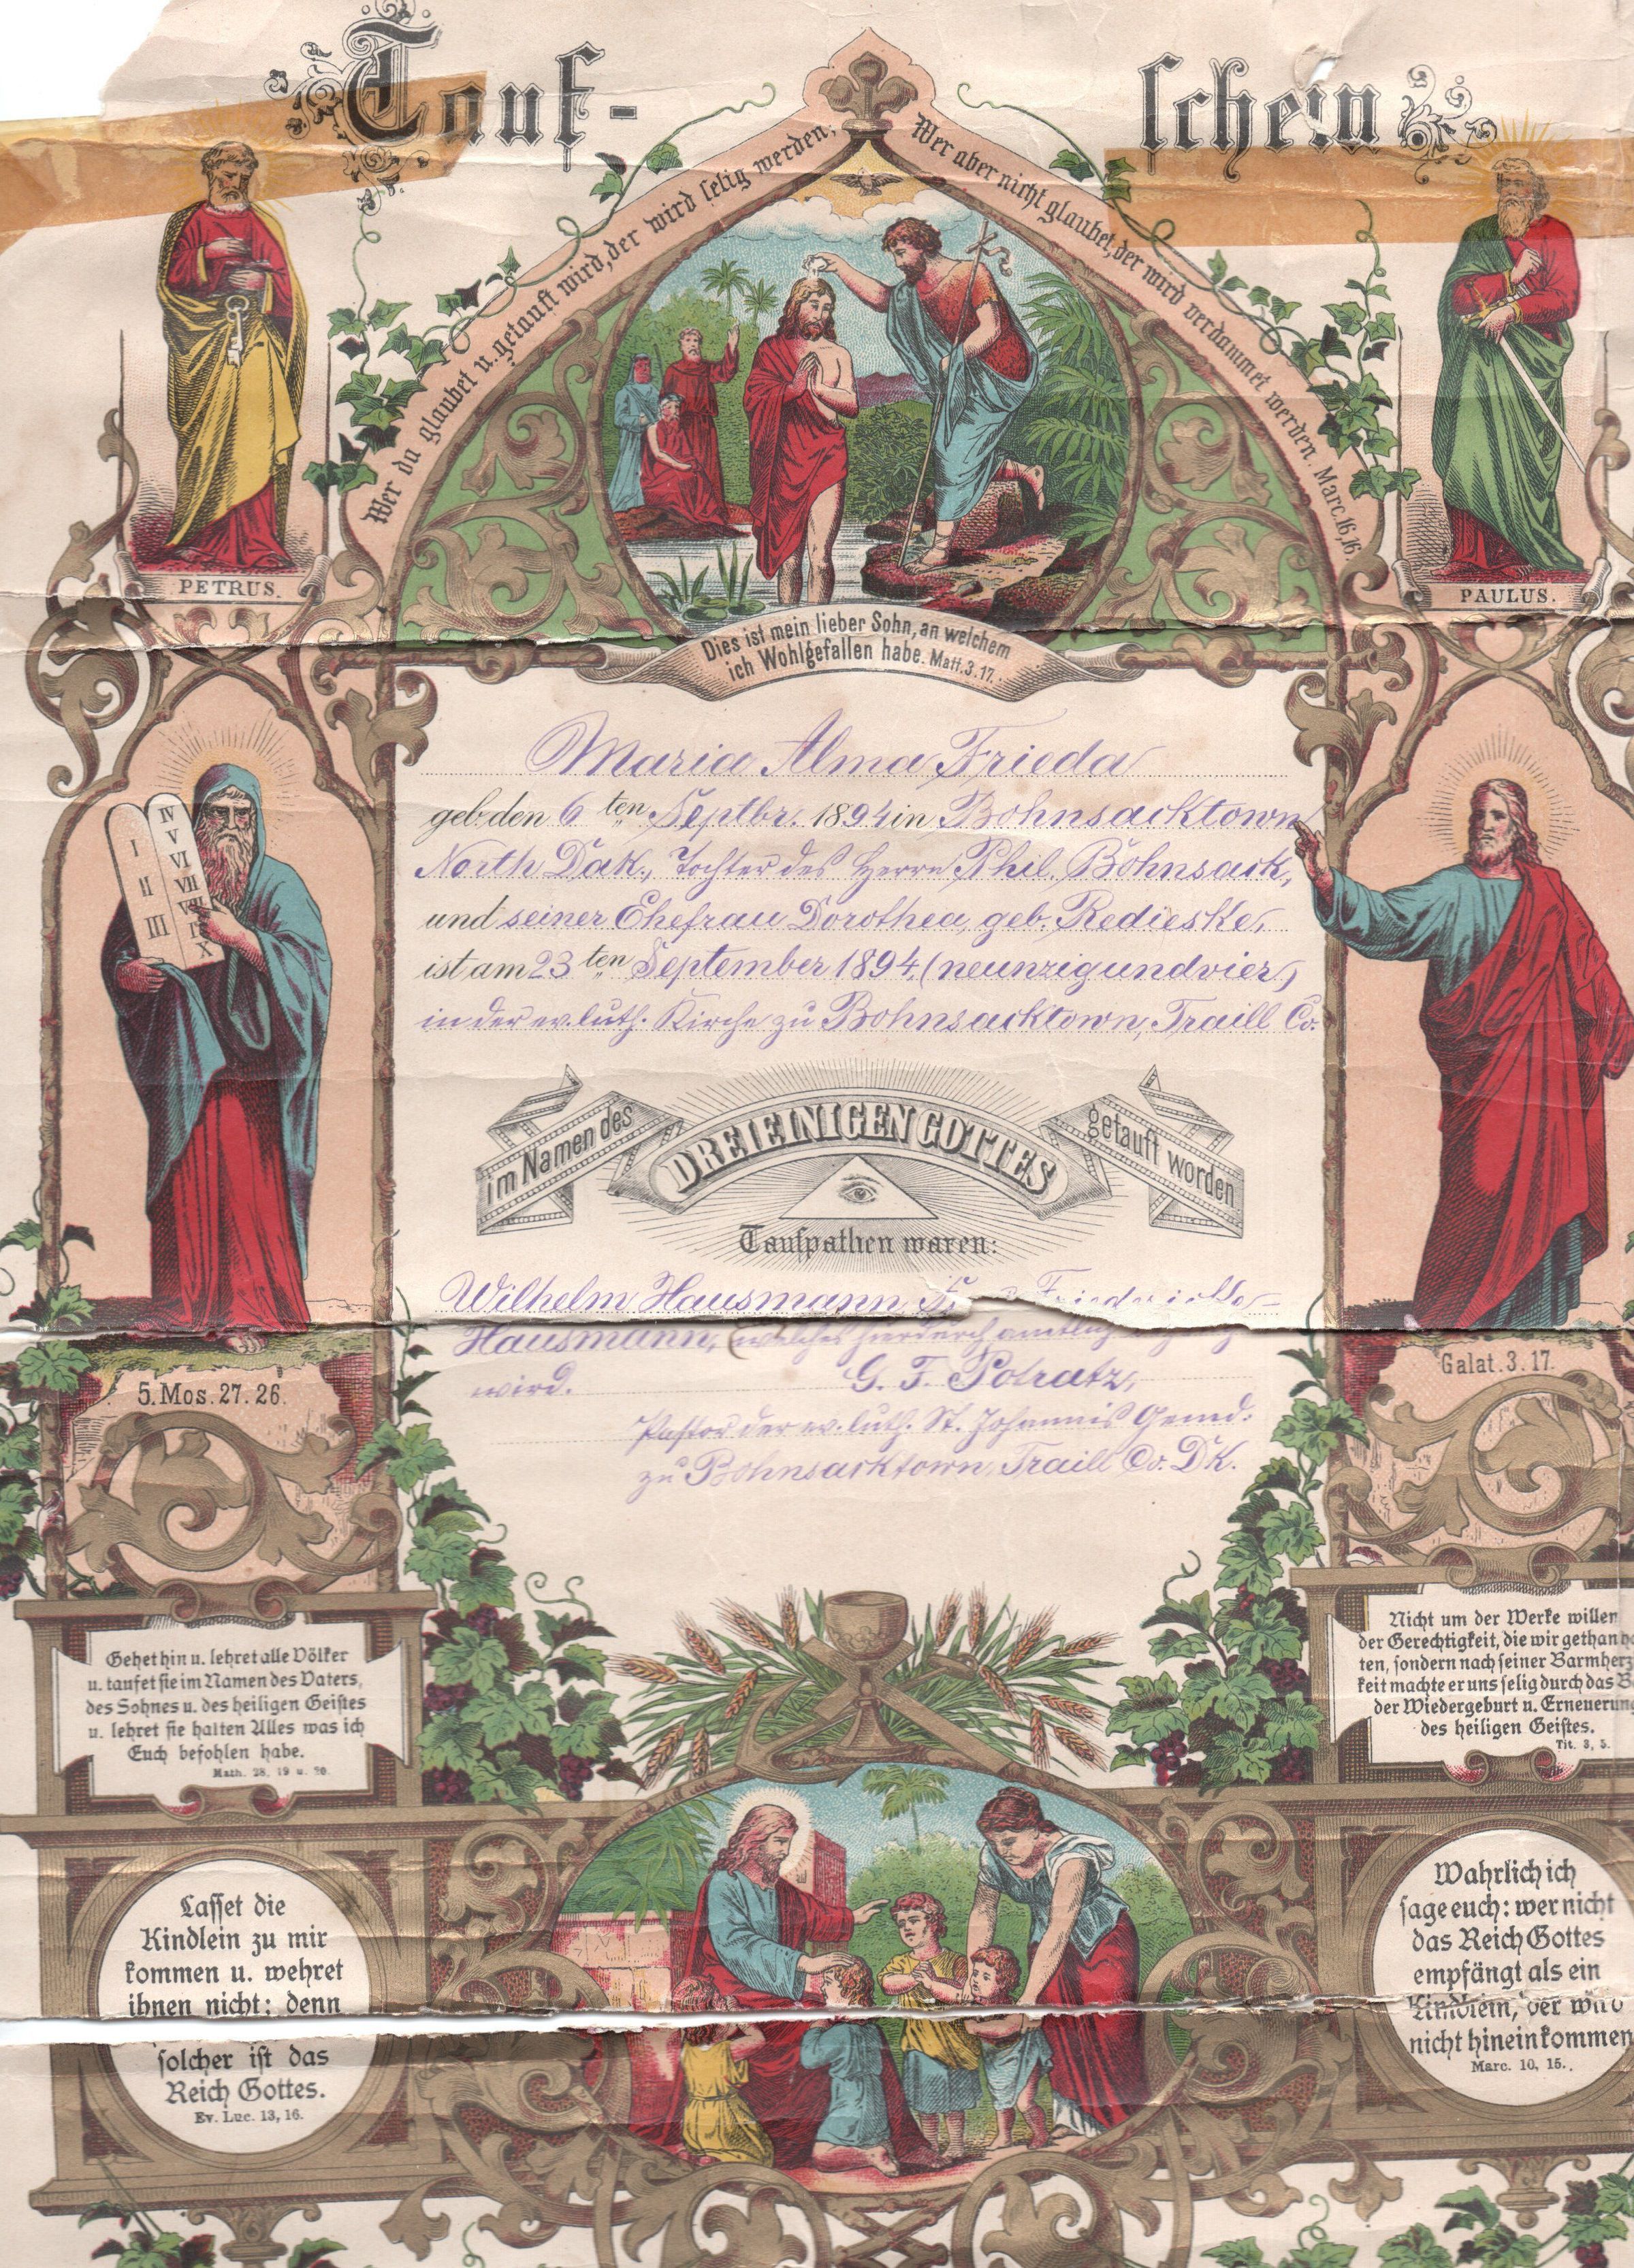 Tauf-schein
Wer da glaubet u. getauft wird, der wird selig werden;
Wer aber nicht glaubet, der wird verdammet werden. Marc. 16, 16
PETRUS.
PAULUS.
Dies ist mein lieber Sohn, an welchem
ich Wohlgefallen habe. Matt. 3. 17.
Maria Alma Frieda
geb. den 6 ten Septbr. 1894 in Bohnsacktown
North Dak., Tochter des Herrn Phil. Bohnsack,
und seiner Ehefrau Dorothea, geb. Redieske,
ist am 23 ten September 1894. (neunzigundvier)
in der ev. luth. Kirche zu Bohnsacktown, Traill Co.
im Namen des DREIEINIGEN GOTTES getauft worden
Taufpathen waren:
Wilhelm Hausmann Friederike
Hausmann, welches hierdurch amtlich
wird.
G. F. Potratz,
Pastor der ev. luth. St. Johannis Gemd.
zu Bohnsacktown, Traill Co. DK.
I
II
III
IV
V
VI
VII
VIII
IX
X
5. Mos. 27. 26.
Galat. 3. 17.
Gehet hin u. lehret alle Völker
u. taufet sie im Namen des Vaters,
des Sohnes u. des heiligen Geistes
u. lehret sie halten Alles was ich
Euch befohlen habe.
Math. 28, 19 u. 20.
Nicht um der Werke willen
der Gerechtigkeit, die wir gethan
ten, sondern nach seiner Barmherz
keit machte er uns selig durch das B
der Wiedergeburt u. Erneuerung
des heiligen Geistes.
Tit. 3, 5.
Lasset die
Kindlein zu mir
kommen u. wehret
ihnen nicht; denn
solcher ist das
Reich Gottes.
Ev. Luc. 13, 16.
Wahrlich ich
sage euch: wer nicht
das Reich Gottes
empfängt als ein
Kindlein, der wird
nicht hineinkommen
Marc. 10, 15.